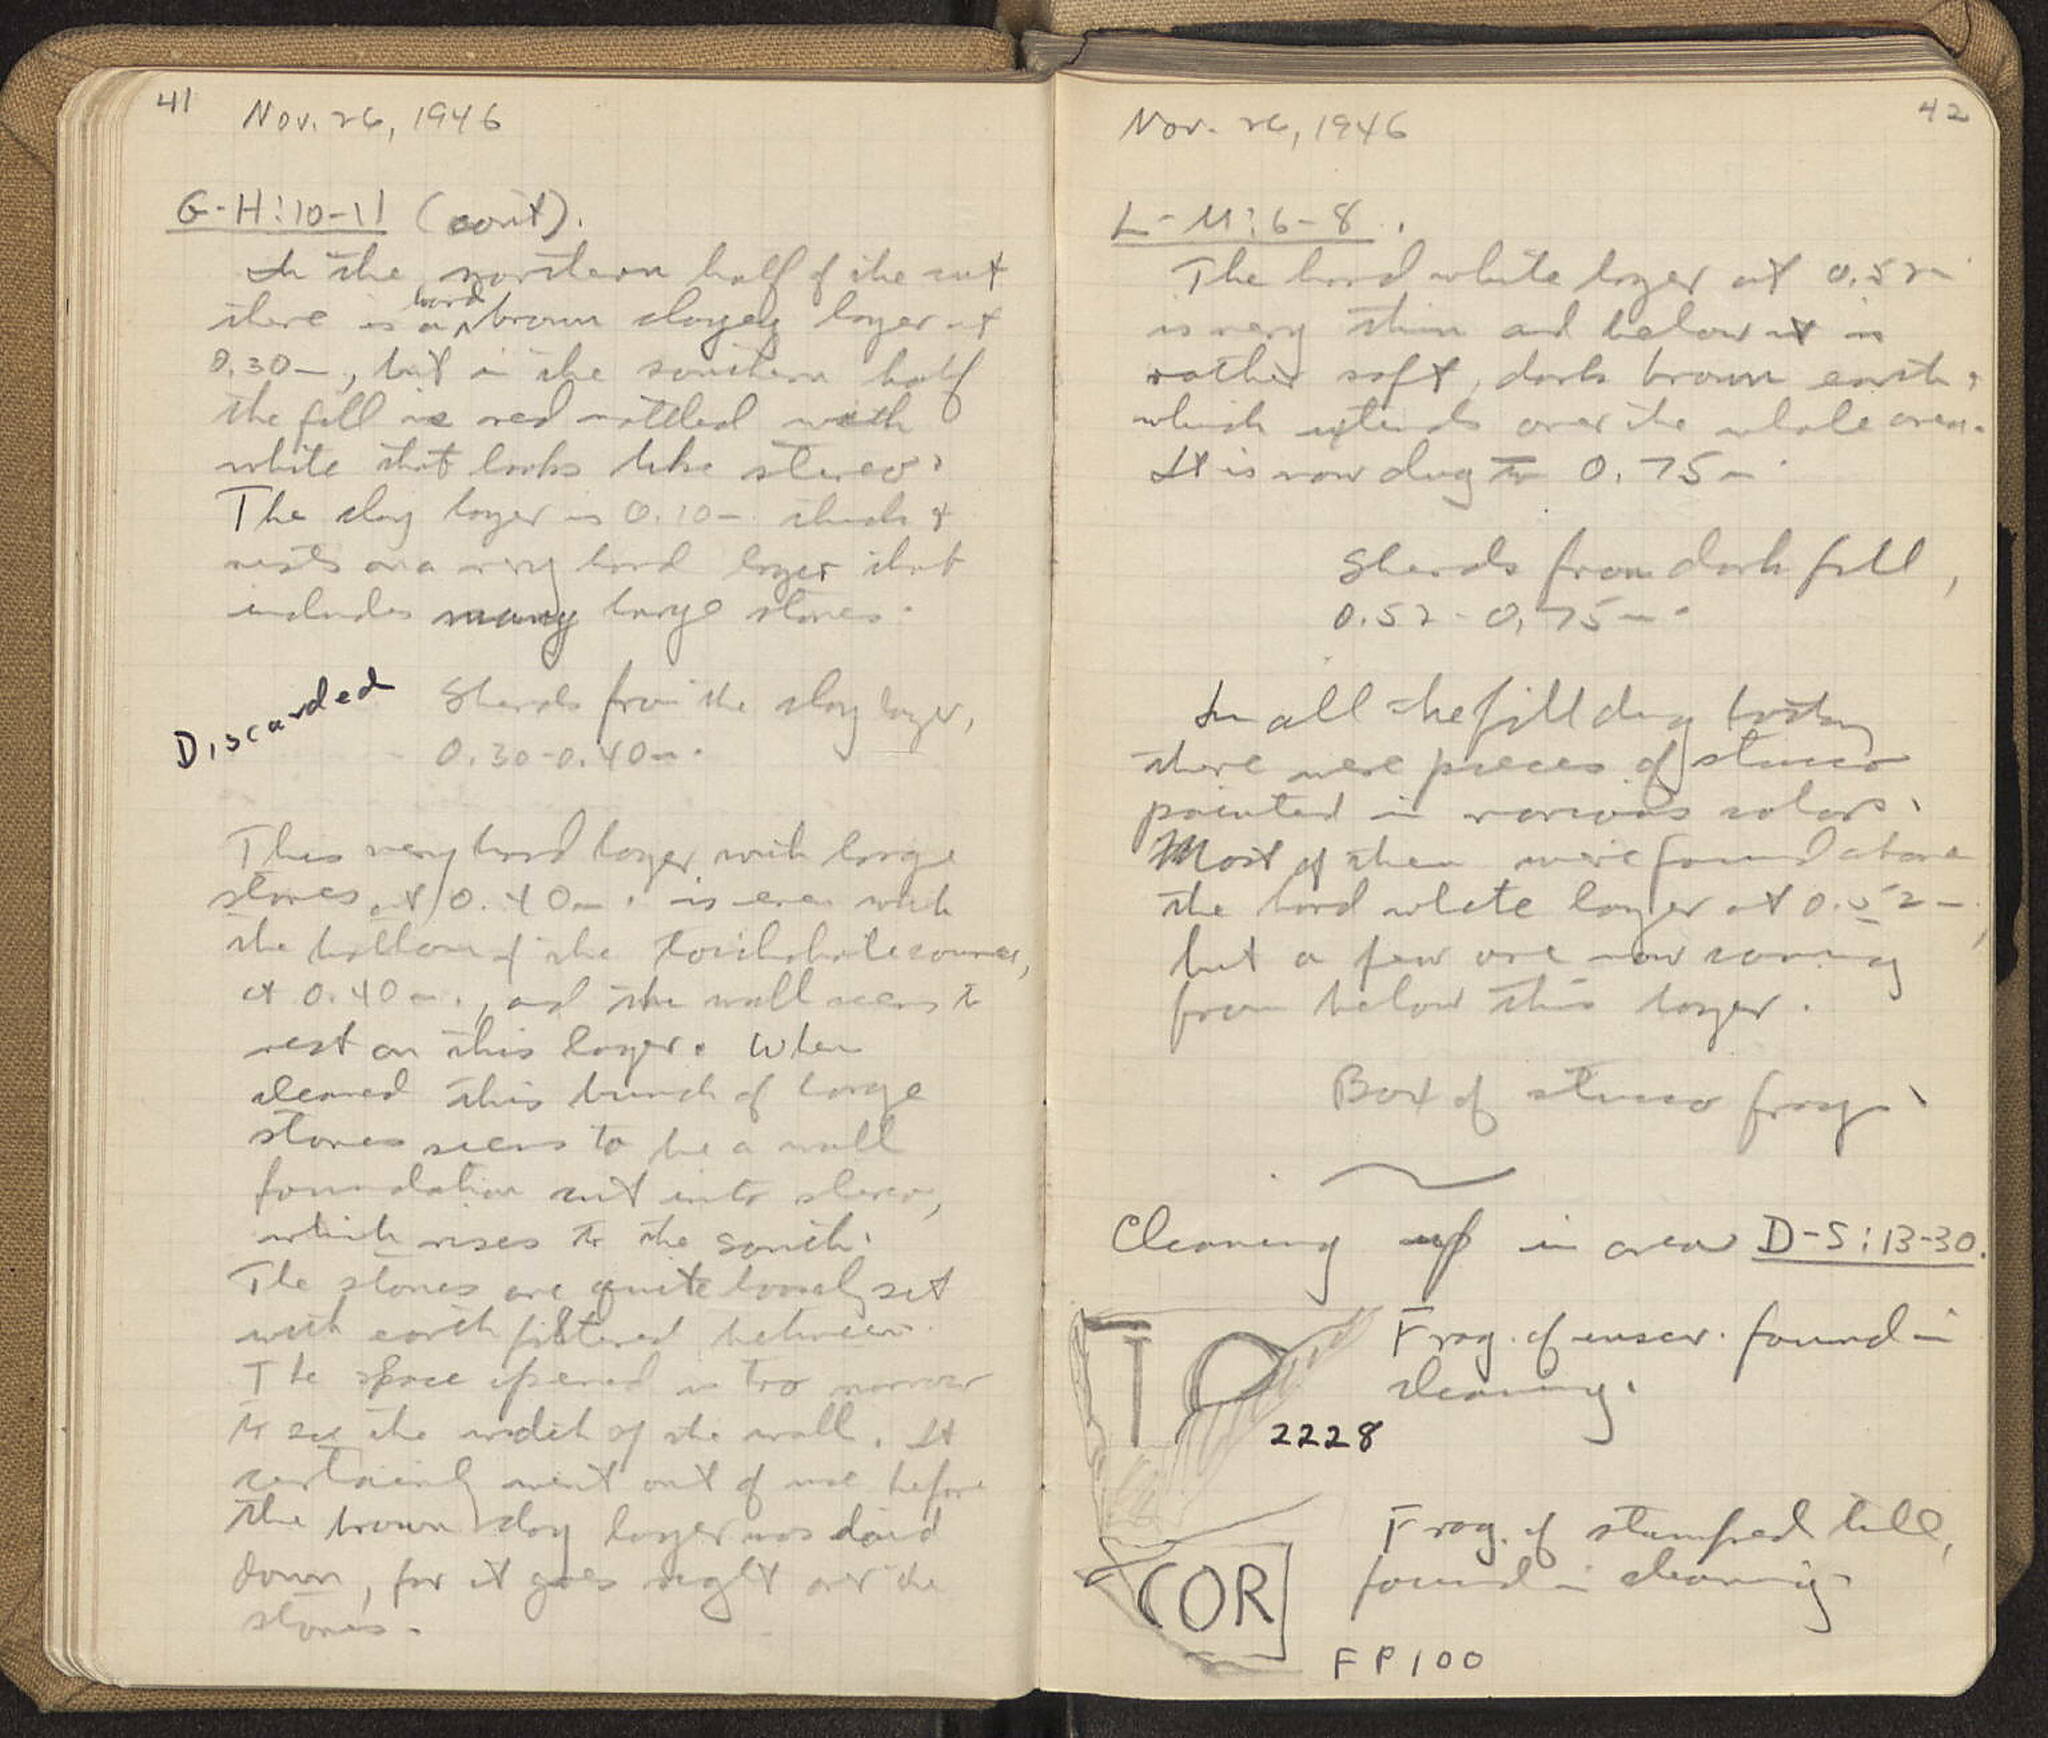 41
Nov. 26, 1946
G-H:10-11 (con't).
In the northern half of the cut
there is a hard brown clayey layer at
0.30m, but in the southern half
the fill is red mottled with
white that looks like stereo.
The clay layer is 0.10m. thick &
rests on a very hard layer that
includes many large stones.
Discarded
Sherds from the clay layer,
0.30-0.40m.
This very hard layer with large
stones at 0.40m. is even with
the bottom of the course,
at 0.40m., and the wall seems to
rest on this layer. When
cleaned this bunch of large
stones seems to be a wall
foundation cut into stereo,
which rises to the south.
The stones are quite loosely set
with earth filtered between.
The space opened is too narrow
to see the width of the wall. It
certainly went out of use before
the brown clay layer was laid
down, for it goes right over the
stones.
42
Nov. 26, 1946
L-M:6-8.
The hard white layer at 0.52m
is very thin and below it is
rather soft, dark brown earth,
which extends over the whole area.
It is now dug to 0.75m.
Sherds from dark fill,
0.52-0.75m.
In all the fill dug today
there were pieces of stucco
painted in various colors.
Most of them were found above
the hard white layer at 0.52m,
but a few are now coming
from below this layer.
Box of stucco frags.
Cleaning up in area D-S:13-30.
TO
Frag. of inscr. found in
cleaning.
2228
Frag. of stamped tile,
found in cleaning.
COR
FP100